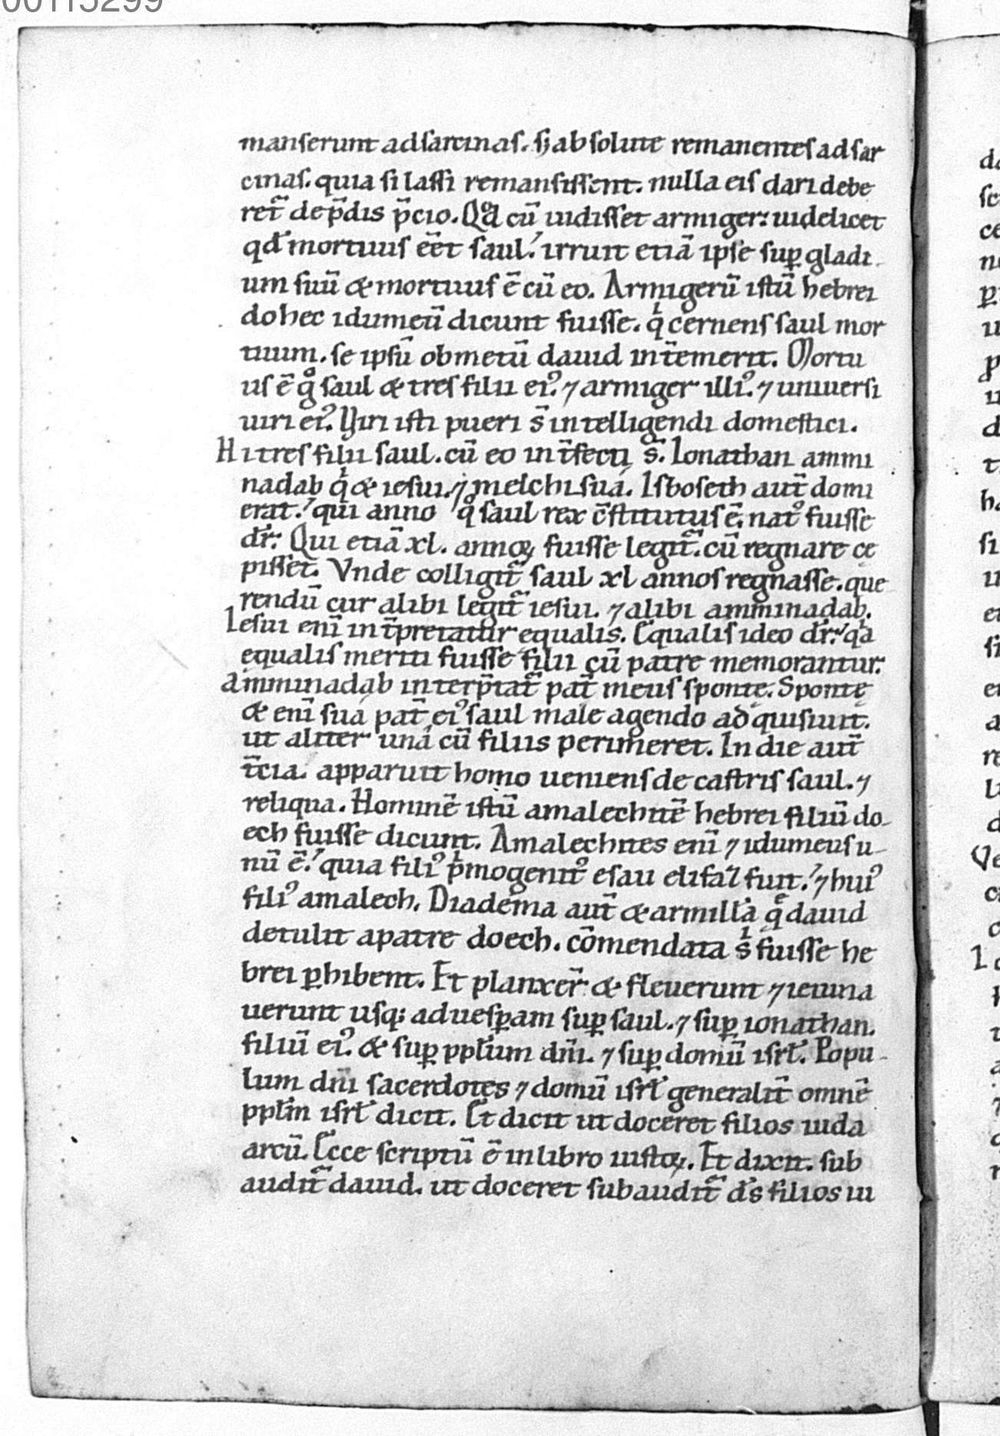 00115299
manserunt ad sarcinas. sꝫ absolute remanentes ad sar
cinas. quia si lassi remansissent. nulla eis dari debe
ret̃ de p̄dis p̄cio. Qd̃ cũ uidisset armiger: uidelicet
qd̃ mortuus eẽt saul. irruit etiã ipse sup̱ gladi-
um suũ & mortuus ẽ cũ eo. Armigerũ istũ hebrei
dohec idumeũ dicunt fuisse. qͥ cernens saul mor
tuum. se ipsũ ob metũ dauid int̃emerit. Mortu
us ẽ gͦ saul & tres filii eiꝰ. ⁊ armiger illiꝰ. ⁊ uniuersi
uiri eiꝰ. Viri isti pueri s̃ intelligendi domestici.
Hi tres filii saul. cũ eo int̃fecti s̃. Ionathan ammi
nadab qͥ & iesui. ⁊ melchisua. Isboseth aut̃ domi
erat. qui anno qͦ saul rex c̃stitutus ẽ. natꝰ fuisse
dr̃. Qui etiã xl. annoꝝ fuisse legit̃. cũ regnare ce
pisset. Vnde colligit̃ saul xl annos regnasse. que
rendũ cur alibi legit̃ iesui. ⁊ alibi amminadab.
Iesui enĩ int̃pretatur equalis. Equalis ideo dr̃. qa
equalis meriti fuisse filii cũ patre memorantur.
Amminadab interp̃tat̃ pat̃ meus sponte. Sponte
& enĩ sua pat̃ eiꝰ saul male agendo adquisiuit.
ut aliter una cũ filiis perimeret. In die aut̃
t̃cia. apparuit homo ueniens de castris saul. ⁊
reliqua. Hominẽ istũ amalechitẽ hebrei filiũ do-
ech fuisse dicunt. Amalechites enĩ ⁊ idumeus u-
nũ ẽ. quia filiꝰ p̃mogenitꝰ esau elifaz fuit. ⁊ huiꝰ
filiꝰ amalech. Diadema aut̃ & armilla q̃ dauid
detulit a patre doech. cõmendata s̃ fuisse he
brei ꝑhibent. Et planxer̃ & fleuerunt ⁊ ieiuna
uerunt usqꝫ ad uesꝑam suꝑ saul. ⁊ suꝑ ionathan.
filiũ eiꝰ. & suꝑ ppl̃um dñi. ⁊ suꝑ domũ isrl̃. Popu-
lum dñi sacerdotes ⁊ domũ isrl̃ generalit̃ omnẽ
ppl̃m isrl̃ dicit. Et dicit ut doceret filios iuda
arcũ. Ecce scriptũ ẽ in libro iustoꝝ. Et dixit. sub
audit̃ dauid. ut doceret subaudit̃ ds̃ filios iu